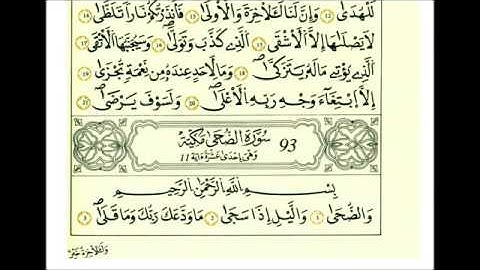 لَلْهُدَىٰ ١٢ وَإِنَّ لَنَا لَلَاخِرَةَ وَالُاولَىٰ ١٣ فَأَنذَرْتُكُمْ نَارًا تَلَظَّىٰ ١٤
لَا يَصْلَاهَا إِلَّا اَلَاشْقَى ١٥ اَلَّذِي كَذَّبَ وَتَوَلَّىٰ ١٦ وَسَيُجَنَّبُهَا اَلَاتْقَى ١٧
اَلَّذِي يُؤْتِي مَالَهُ يَتَزَكَّىٰ ١٨ وَمَا لِأَحَدٍ عِندَهُ مِن نِّعْمَةٍ تُجْزَىٰ ١٩
إِلَّا اَبْتِغَاءَ وَجْهِ رَبِّهِ اِلَاعْلَىٰ ٢٠ وَلَسَوْفَ يَرْضَىٰ ٢١
93 سُورَةُ الضُّحَىٰ مَكِّيَّة
وَهِيَ إِحْدَىٰ عَشْرَةَ ءَايَة 11
بِسْمِ اللَّهِ الرَّحْمَٰنِ الرَّحِيمِ
وَالضُّحَىٰ ١ وَالَّيْلِ إِذَا سَجَىٰ ٢ مَا وَدَّعَكَ رَبُّكَ وَمَا قَلَىٰ ٣
وَلَلَاخِرَةُ خَيْرٌ